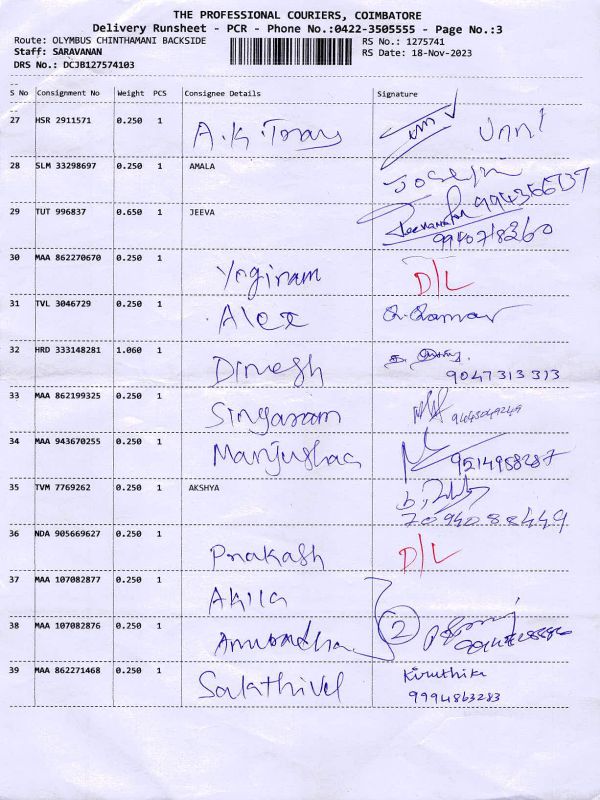 THE PROFESSIONAL COURIERS, COIMBATORE
Delivery Runsheet - PCR - Phone No.:0422-3505555 - Page No.:3
Route: OLYMBUS CHINTHAMANI BACKSIDE RS No.: 1275741
Staff: SARAVANAN RS Date: 18-Nov-2023
DRS No.: DCJB127574103
S No Consignment No Weight PCS Consignee Details Signature
27 HSR 2911571 0.250 1 Unni
28 SLM 33298697 0.250 1 AMALA
29 TUT 996837 0.650 1 JEEVA
9940718260
30 MAA 862270670 0.250 1 Yogiram D/L
31 TVL 3046729 0.250 1 Alex
32 HRD 333148281 1.060 1 Dinesh
9047313313
33 MAA 862199325 0.250 1 Singaram
34 MAA 943670255 0.250 1 Manjushac
9514958287
35 TVM 7769262 0.250 1 AKSHYA
7094088449
36 NDA 905669627 0.250 1 Prakash D/L
37 MAA 107082877 0.250 1 Akila
38 MAA 107082876 0.250 1 Anuradha 2
39 MAA 862271468 0.250 1 Sakthivel Kiruthika
9994863283